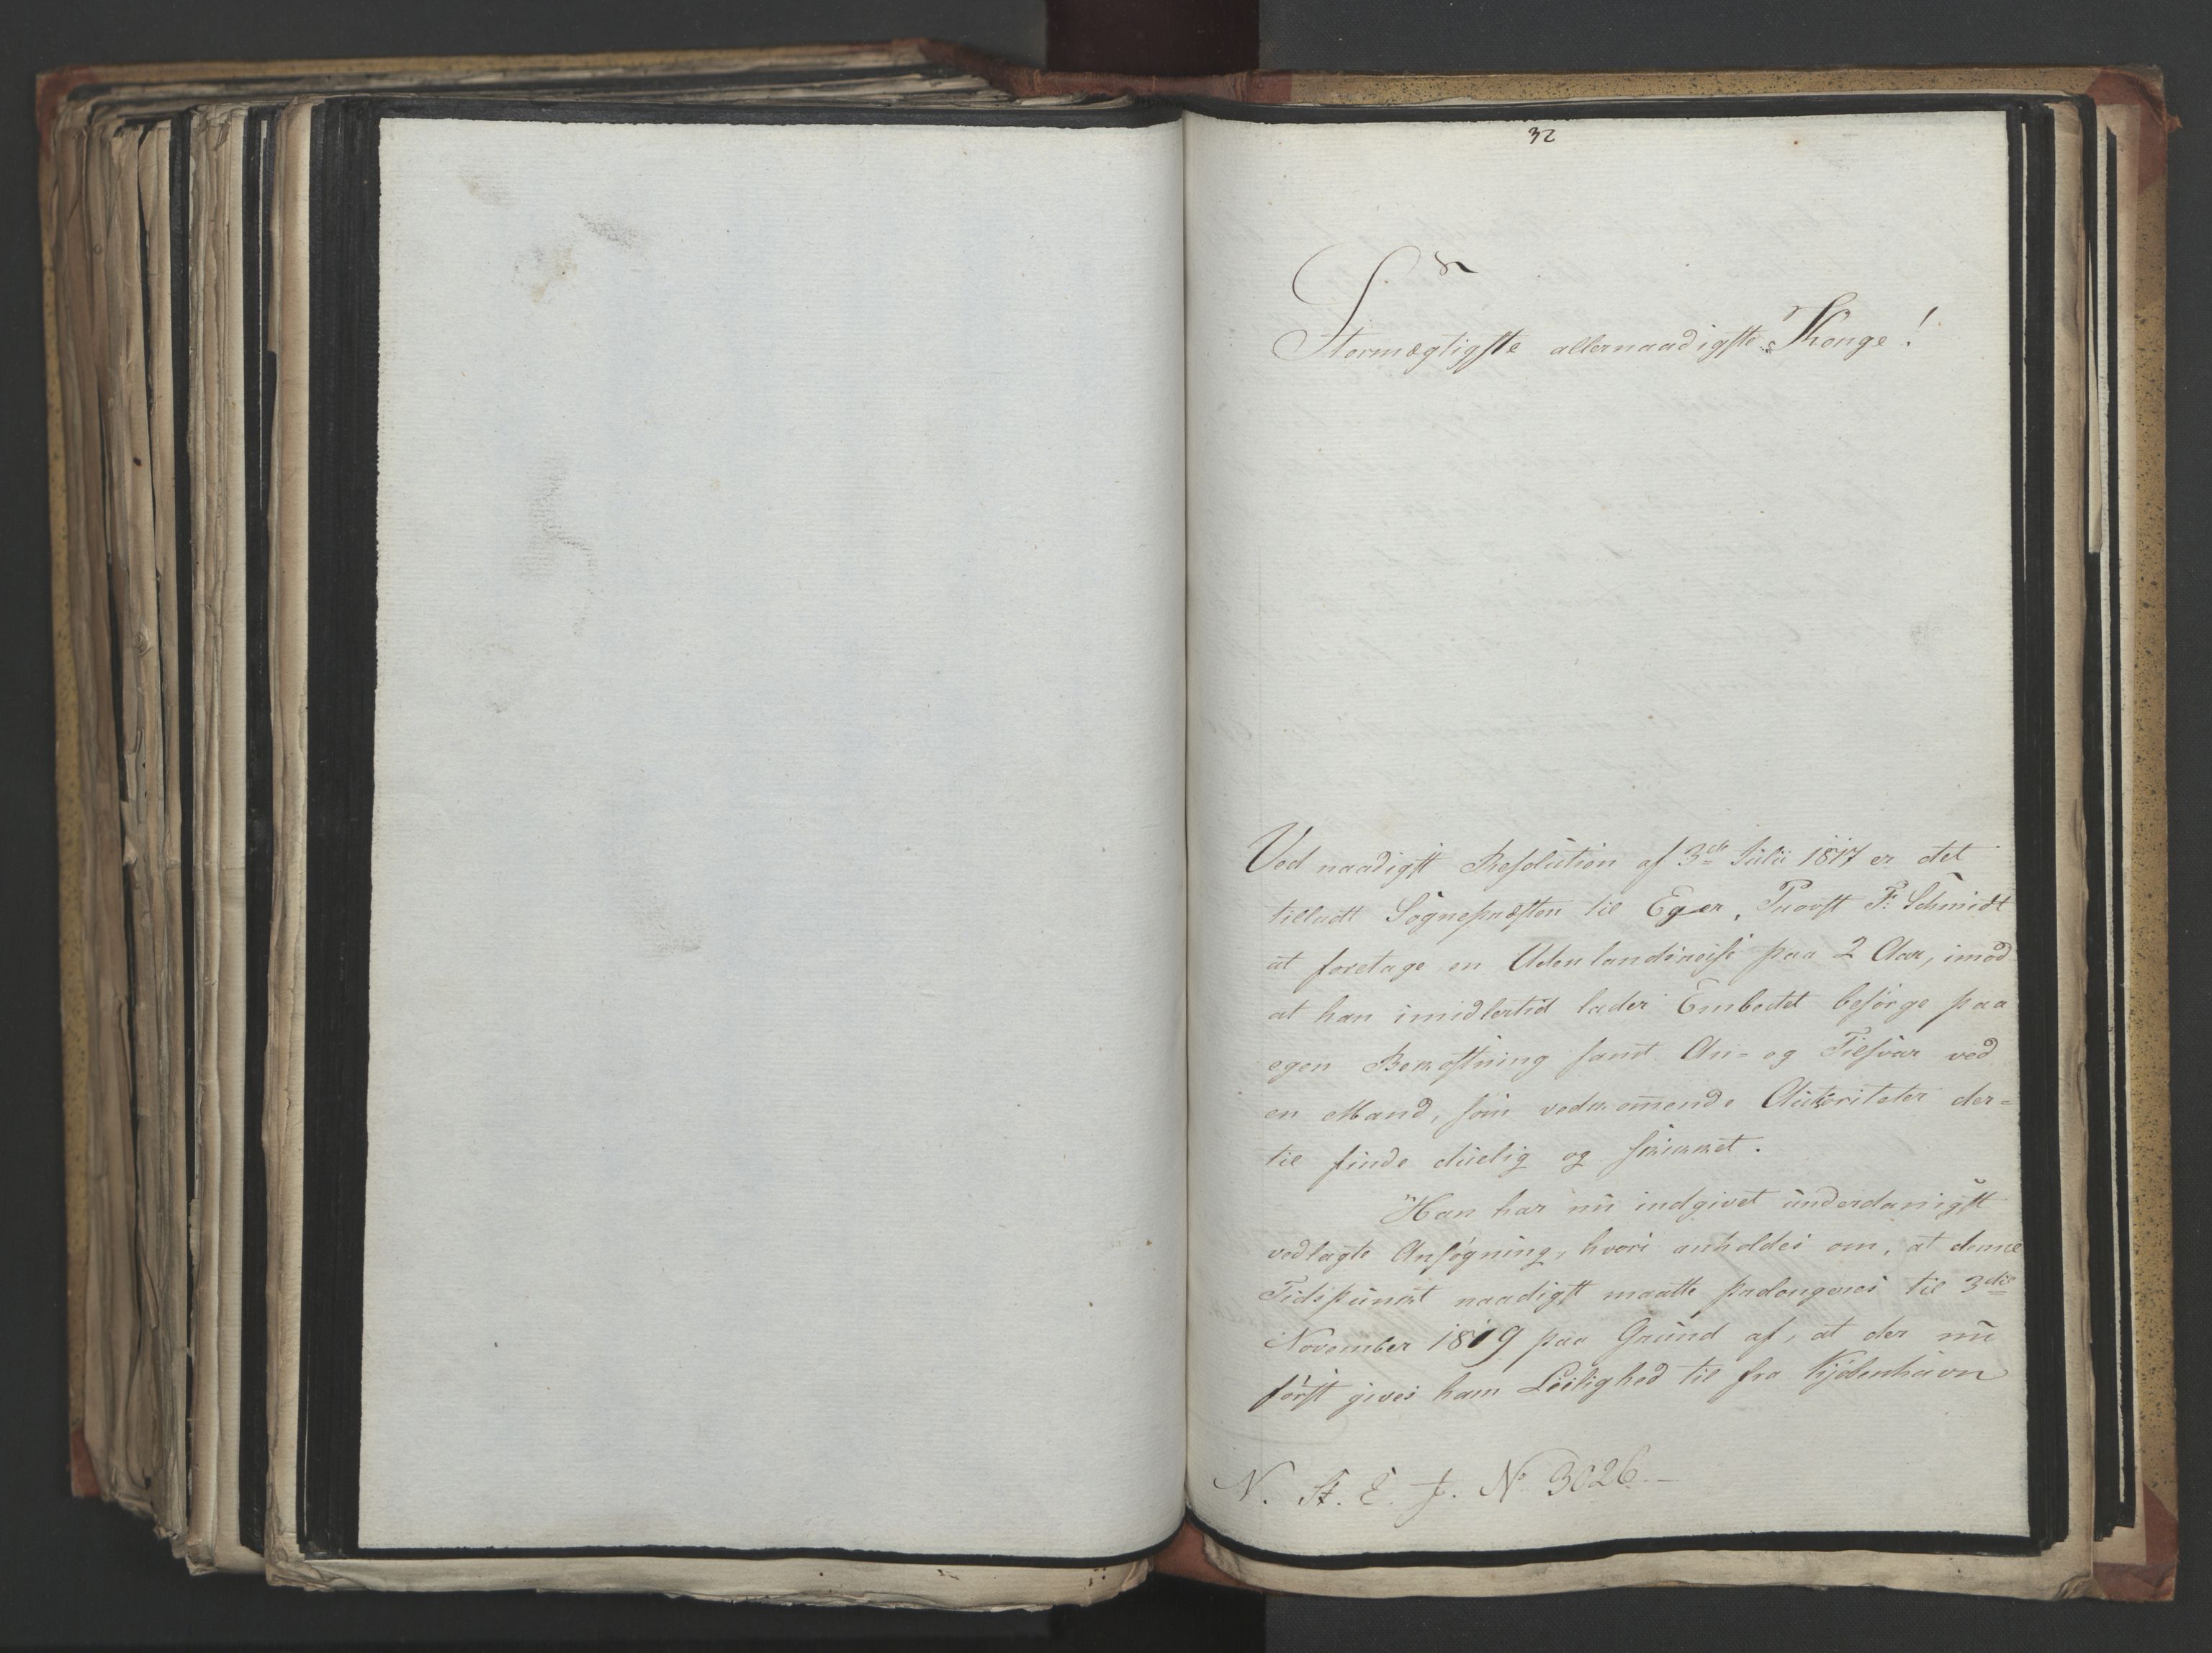 32
Stormægtigste allernaadigste Konge!
Ved naadigst Resolution af 3die Julii 1817 er det
tilladt Sognepræsten til Eger, Provst F: Schmidt
at foretage en Udenlandsreise paa 2 Aar, imod
at han imidlertid lader Embedet besørge paa
egen Bekostning samt An- og Tilsvar ved
en Mand, som vedkommende Autoriteter der=
til finde duelig og skikket.
Han har nu indgivet underdanigst
vedlagte Ansøgning, hvori anholdes om, at denne
Tidspunkt naadigst maatte prolongeres til 3die
November 1819 paa Grund af, at der nu
først gives ham Leilighed til fra Kjøbenhavn
N. St. E. J. No 3026.-